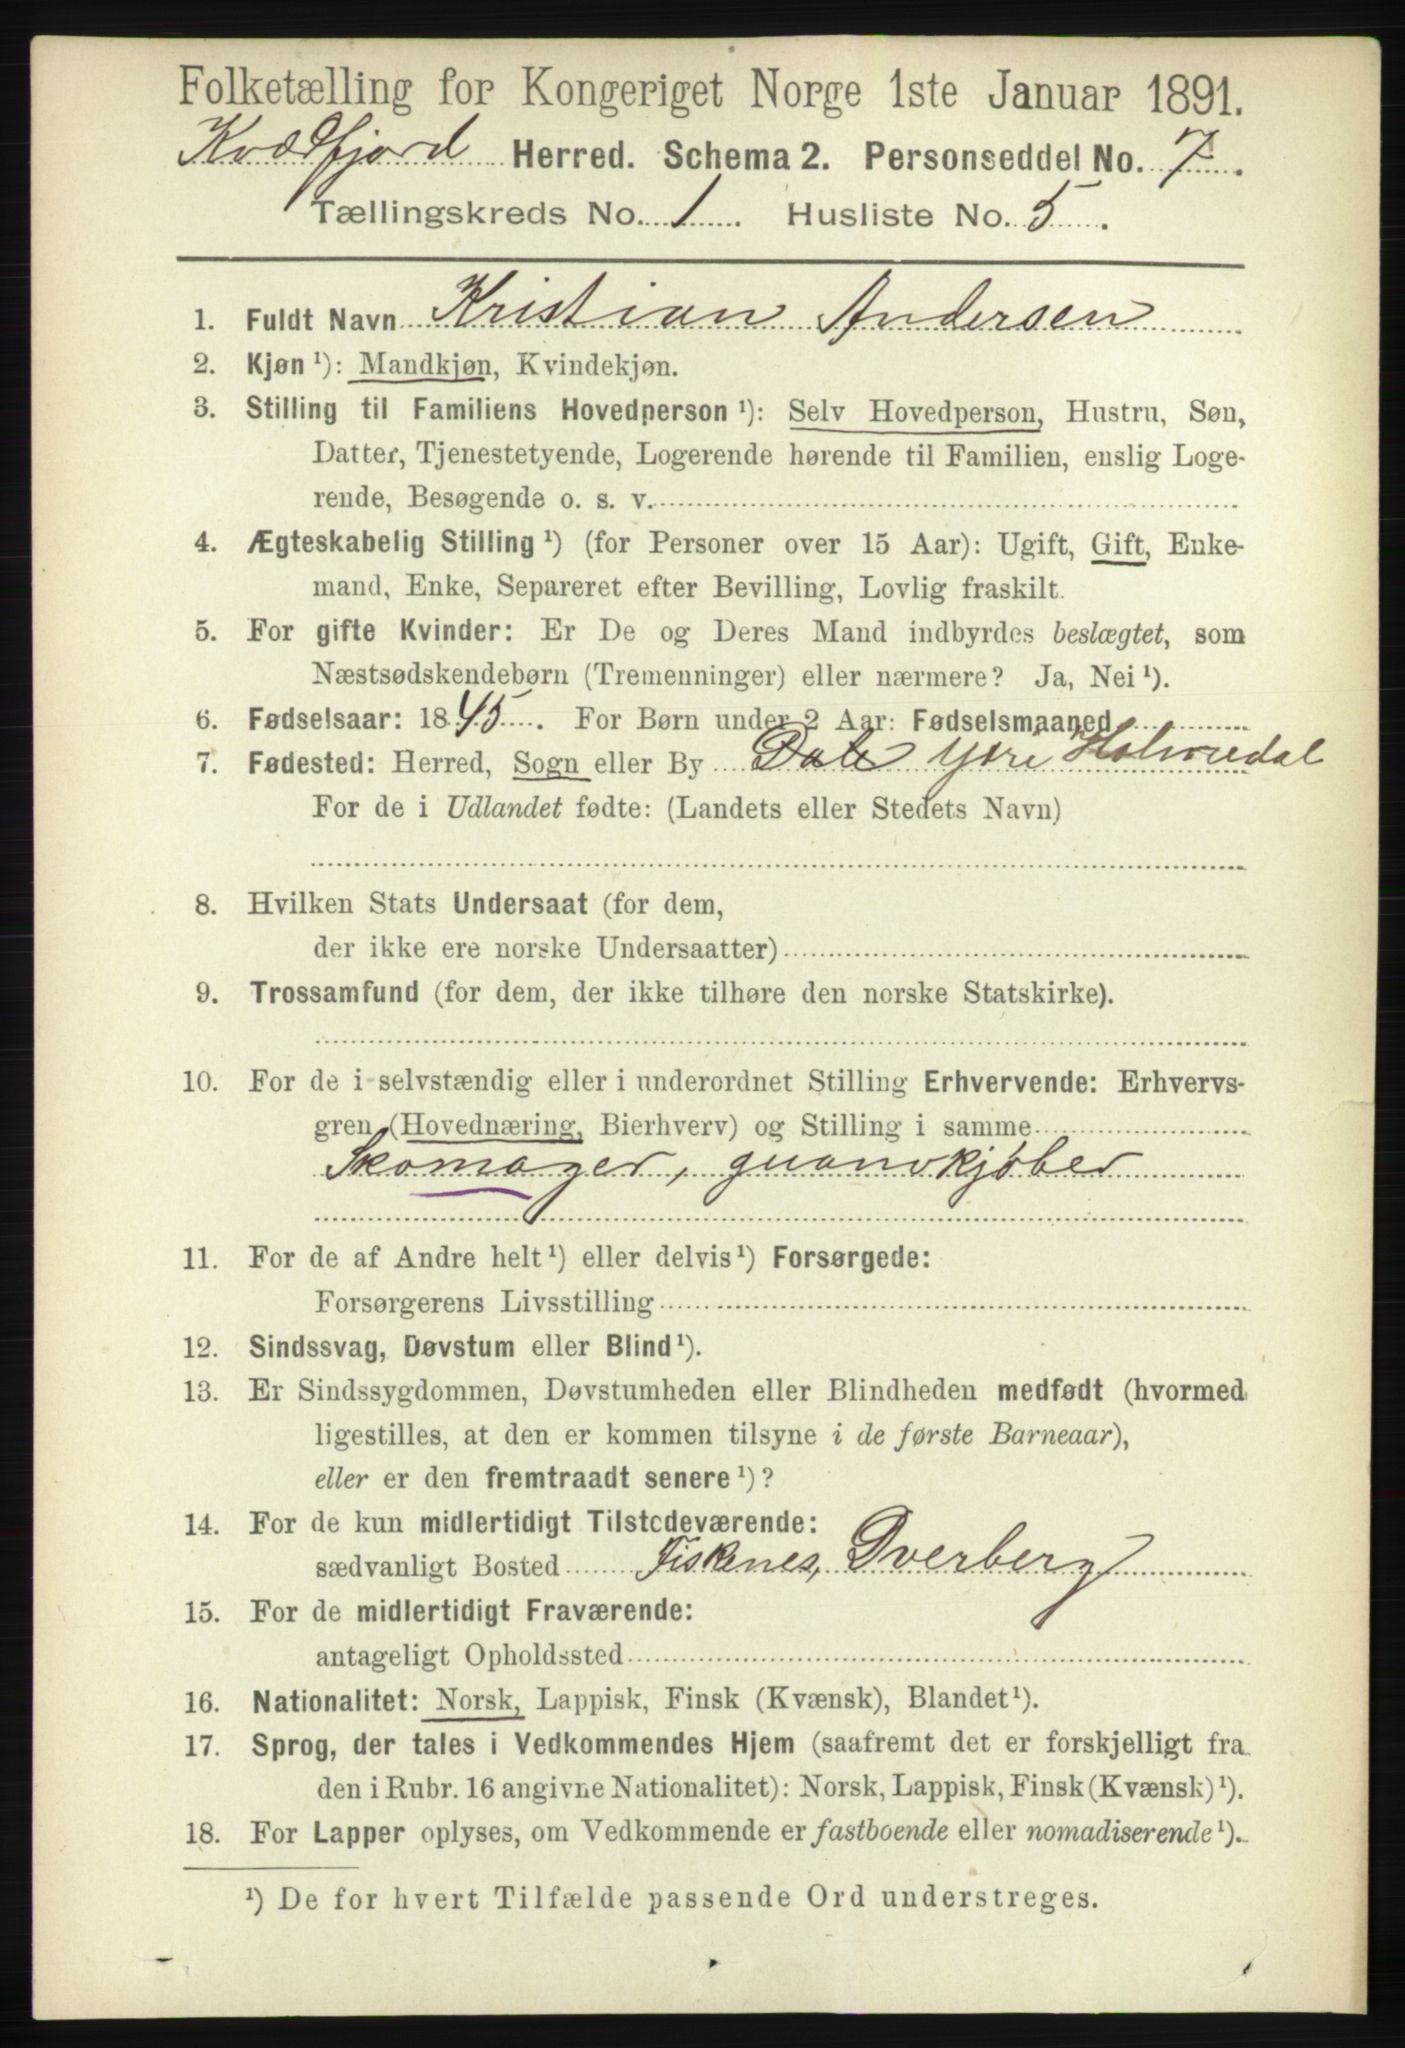 Folketælling for Kongeriget Norge 1ste Januar 1891.
Kvædfjord Herred. Schema 2. Personseddel No. 7.
Tællingskreds No. 1. Husliste No. 5.
1. Fuldt Navn Kristian Andersen
2. Kjøn ¹): Mandkjøn, Kvindekjøn.
3. Stilling til Familiens Hovedperson ¹): Selv Hovedperson, Hustru, Søn,
Datter, Tjenestetyende, Logerende hørende til Familien, enslig Loge-
rende, Besøgende o. s. v.
4. Ægteskabelig Stilling ¹) (for Personer over 15 Aar): Ugift, Gift, Enke-
mand, Enke, Separeret efter Bevilling, Lovlig fraskilt.
5. For gifte Kvinder: Er De og Deres Mand indbyrdes beslægtet, som
Næstsødskendebørn (Tremenninger) eller nærmere? Ja, Nei ¹).
6. Fødselsaar: 1845. For Børn under 2 Aar: Fødselsmaaned
7. Fødested: Herred, Sogn eller By Dale Ytre Holmedal
For de i Udlandet fødte: (Landets eller Stedets Navn)
8. Hvilken Stats Undersaat (for dem,
der ikke ere norske Undersaatter)
9. Trossamfund (for dem, der ikke tilhøre den norske Statskirke).
10. For de i selvstændig eller i underordnet Stilling Erhvervende: Erhvervs-
gren (Hovednæring, Bierhverv) og Stilling i samme
Skomager, guanokjøber
11. For de af Andre helt ¹) eller delvis ¹) Forsørgede:
Forsørgerens Livsstilling
12. Sindssvag, Døvstum eller Blind ¹).
13. Er Sindssygdommen, Døvstumheden eller Blindheden medfødt (hvormed
ligestilles, at den er kommen tilsyne i de første Barneaar),
eller er den fremtraadt senere ¹)?
14. For de kun midlertidigt Tilstedeværende:
sædvanligt Bosted Fiskenes, Dverberg
15. For de midlertidigt Fraværende:
antageligt Opholdssted
16. Nationalitet: Norsk, Lappisk, Finsk (Kvænsk), Blandet ¹).
17. Sprog, der tales i Vedkommendes Hjem (saafremt det er forskjelligt fra
den i Rubr. 16 angivne Nationalitet): Norsk, Lappisk, Finsk (Kvænsk) ¹).
18. For Lapper oplyses, om Vedkommende er fastboende eller nomadiserende ¹).
¹) De for hvert Tilfælde passende Ord understreges.